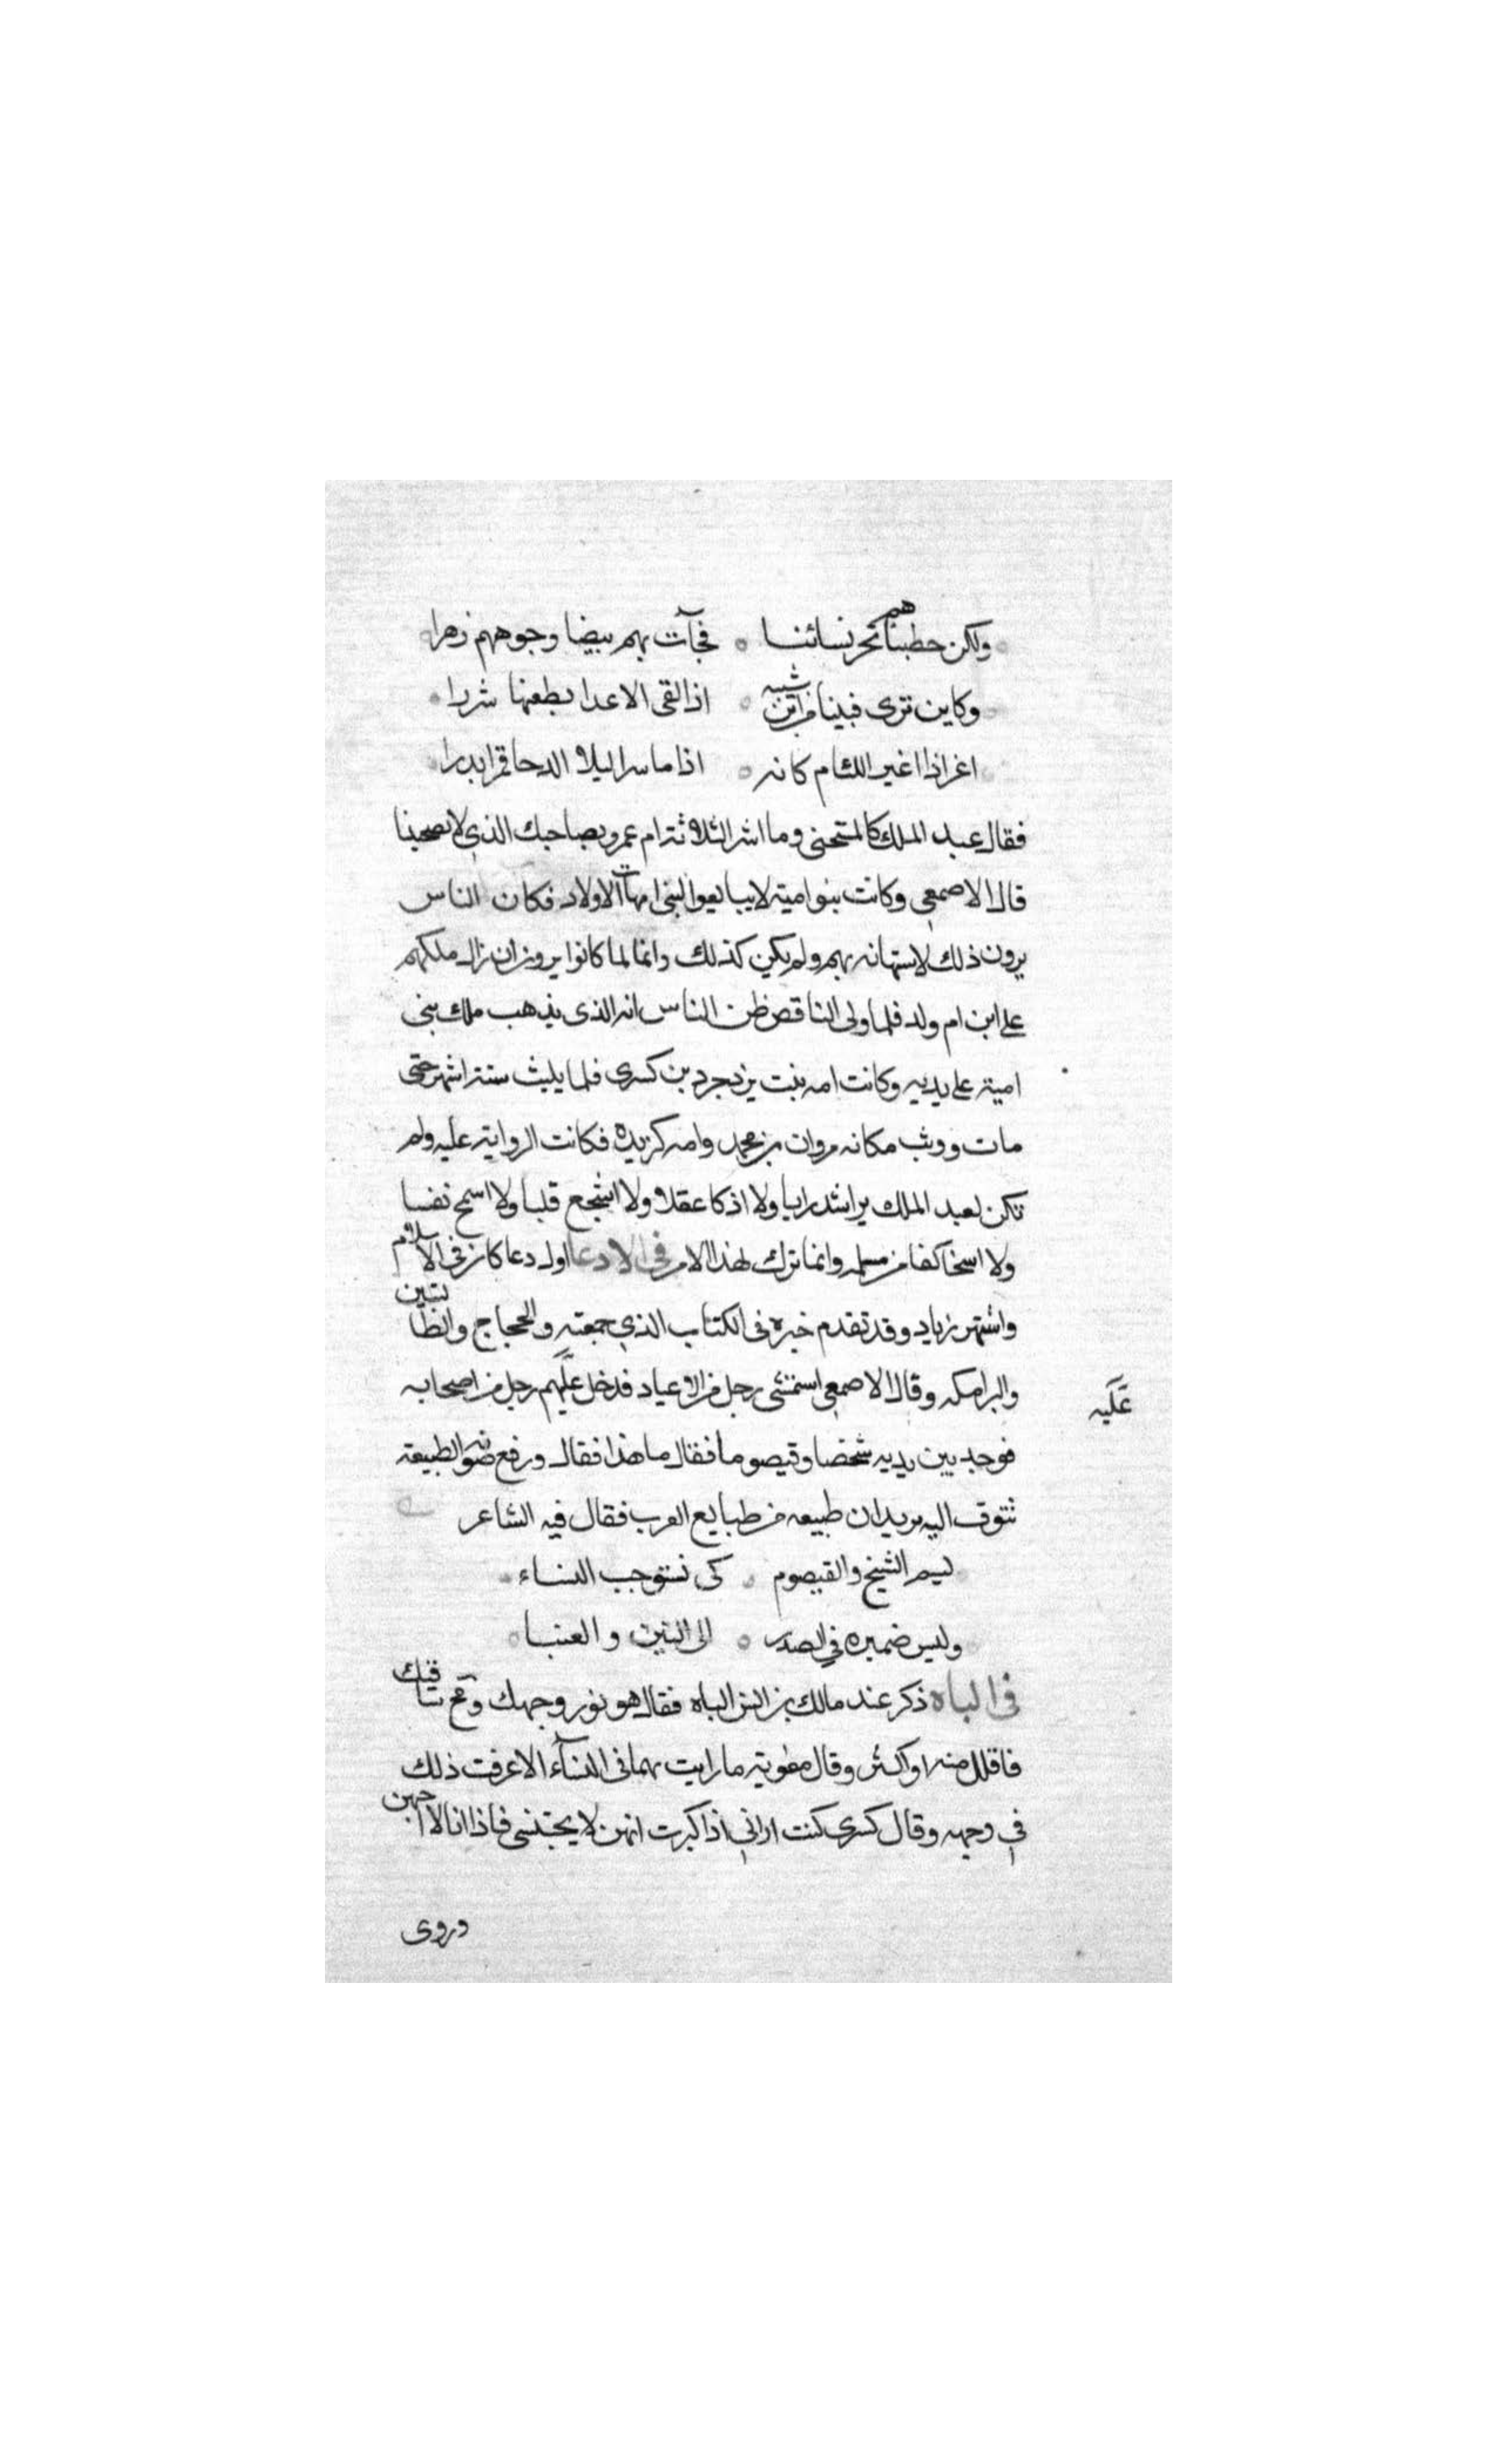 ولكن خطبناهم بخير نسائنا ۰ فجآت بهم بيضا وجوههم زهرا
وكاين ترى فينا من ابن سبية ۰ اذا لقى الاعدا يطعنها شزرا
اغر اذا اغبر اللئام كانه ۰ اذا ما سرا ليلا الدجا قمرا بدرا
فقال عبد الملك كالمستحى وما اشر الثلاثة ام عمرو بصاحبك الذي لا تصحبينا
قال الاصمعي وكانت بنو امية لا يبايعوا لبنى امهات الاولاد فكان الناس
يرون ذلك لاستهانه بهم ولم يكن كذلك وانما لما كانوا يرون ان زال ملكهم
على ابن ام ولد فلما ولى الناقص ظن الناس انه الذى يذهب ملك بنى
امية على يديه وكانت امه بنت يزدجرد بن كسرى فلما يلبث ستة اشهر حتى
مات ووثب مكانه مروان بن محمد وامه كرديه فكانت الرواية عليه ولم
تكن لعبد الملك ير اشد رايا ولا اذكا عقلا ولا اشجع قلبا ولا اسمح نفسا
ولا اسخا كفا من مسلمه وانما ترك لهذا الامر فى الادعا اول دعا كان فى الاسلام
واشتهر زياد وقد تقدم خبره فى الكتاب الذي جمعته والحجاج والطالبتين
والبرامكه وقال الاصمعي استمشى رجل من الاعياد فدخل عليهم رجل من اصحابه
عليه
فوجد بين يديه شيخا وقيصوما فقال ما هذا فقال ورفع صوته الطبيعة
تتوق اليه يريد ان طبيعه من طبايع العرب فقال فيه الشاعر
ليسم الشيخ والقيصوم ۰ كى تستوجب النساء
وليس ضميره في الصدر ۰ الى التين والعنبا
فى الباه ذكر عند مالك بن انس الباه فقال هو نور وجهك ومخ ساقيك
فاقلل منه او اكثر وقال معوية ما رايت نهما فى النساء الا عرفت ذلك
في وجهه وقال كسرى كنت اراني اذا كبرت انهن لا يحببنني فاذا انا لا احبهن
وروى